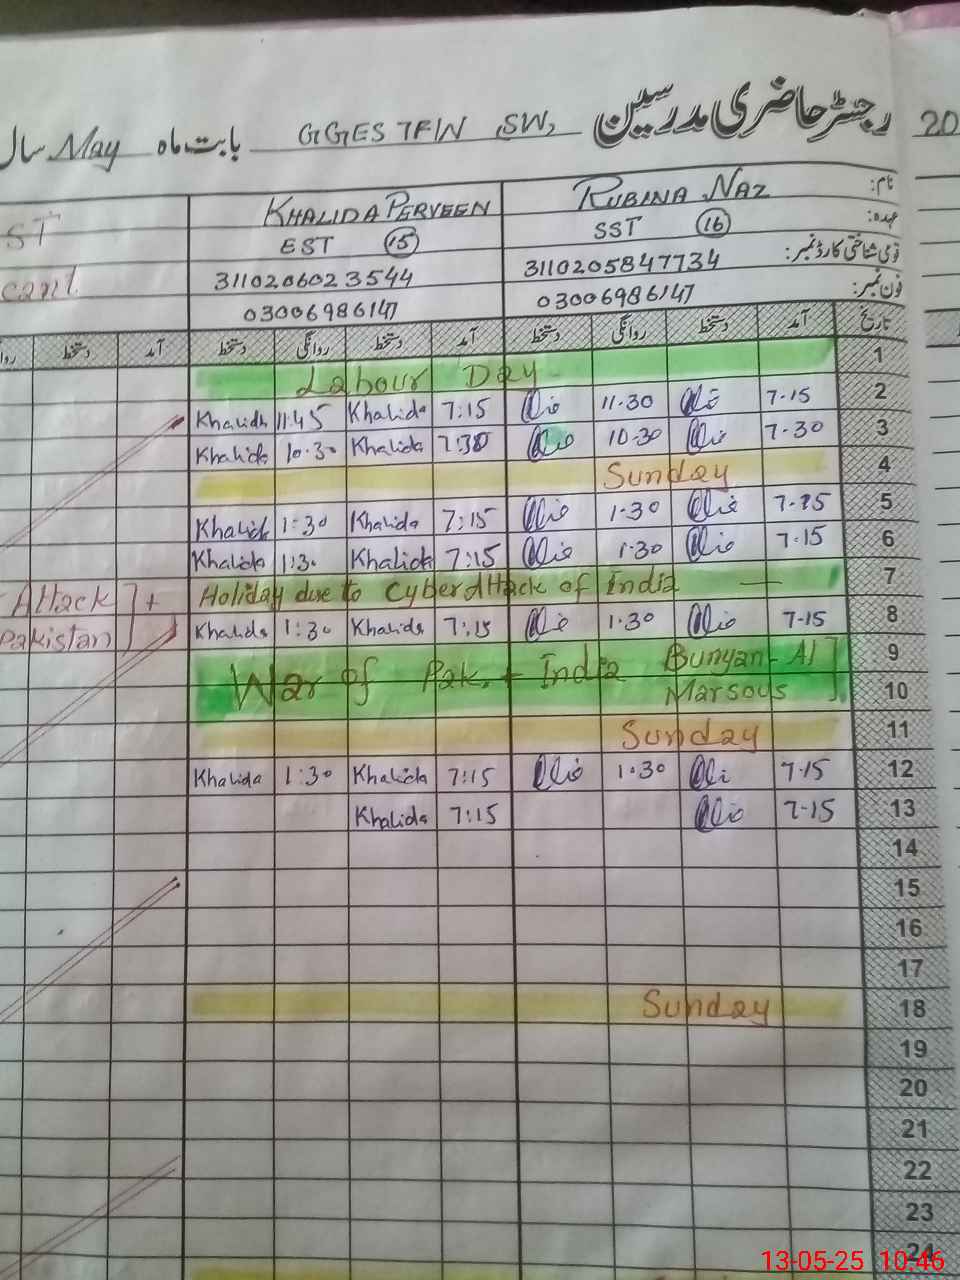 رجسٹر حاضری مدرسین GGES 7F/W SW, بابت ماه May سال
20
نام: RUBINA NAZ KHALIDA PERVEEN
عہدہ: SST 16 EST 15 ST
قومی شناختی کارڈ نمبر: 3110205847734 3110206023544
فون نمبر: 03006986147 03006986147
تاریخ آمد دستخط روانگی دستخط آمد دستخط روانگی دستخط آمد دستخط
1 Labour Day
2 7-15 11-30 7:15 Khalida 11:45 Khalida
3 7-30 10-30 7:30 Khalida 10:30 Khalida
4 Sunday
5 7-15 1-30 7:15 Khalida 1:30 Khalida
6 7-15 1-30 7:15 Khalida 1:30 Khalida
7 Holiday due to Cyber Attack of India
Attack
8 7-15 1-30 7:15 Khalida 1:30 Khalida
Pakistan
9 War of Pak. + India Bunyan-Al
10 Marsous
11 Sunday
12 7-15 1-30 7:15 Khalida 1:30 Khalida
13 7-15 7:15 Khalida
14
15
16
17
18 Sunday
19
20
21
22
23
24
13-05-25 10:46